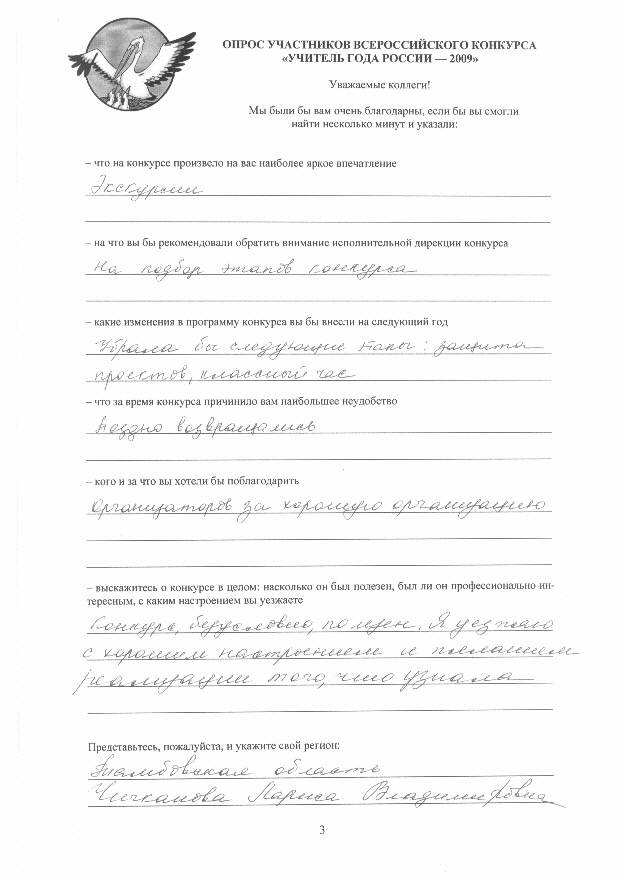 ОПРОС УЧАСТНИКОВ ВСЕРОССИЙСКОГО КОНКУРСА
«УЧИТЕЛЬ ГОДА РОССИИ — 2009»
Уважаемые коллеги!
Мы были бы вам очень благодарны, если бы вы смогли
найти несколько минут и указали:
– что на конкурсе произвело на вас наиболее яркое впечатление
Экскурсии
– на что вы бы рекомендовали обратить внимание исполнительной дирекции конкурса
На подбор этапов конкурса
– какие изменения в программу конкурса вы бы внесли на следующий год
Убрала бы следующие этапы: защита
проектов, классный час
– что за время конкурса причинило вам наибольшее неудобство
Поздно возвращались
– кого и за что вы хотели бы поблагодарить
Организаторов за хорошую организацию
– выскажитесь о конкурсе в целом: насколько он был полезен, был ли он профессионально ин-
тересным, с каким настроением вы уезжаете
Конкурс, безусловно, полезен. Я уезжаю
с хорошим настроением и желанием
реализации того, что узнала
Представьтесь, пожалуйста, и укажите свой регион:
Тамбовская область
Чичканова Лариса Владимировна
3